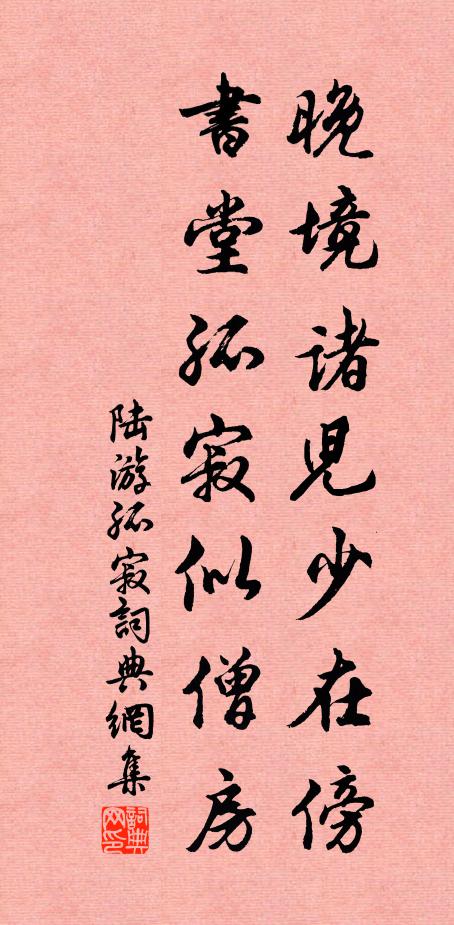 晚境諸児少在傍
書堂孤寂似僧房
陆游孤寂詞典網集
詞典网印